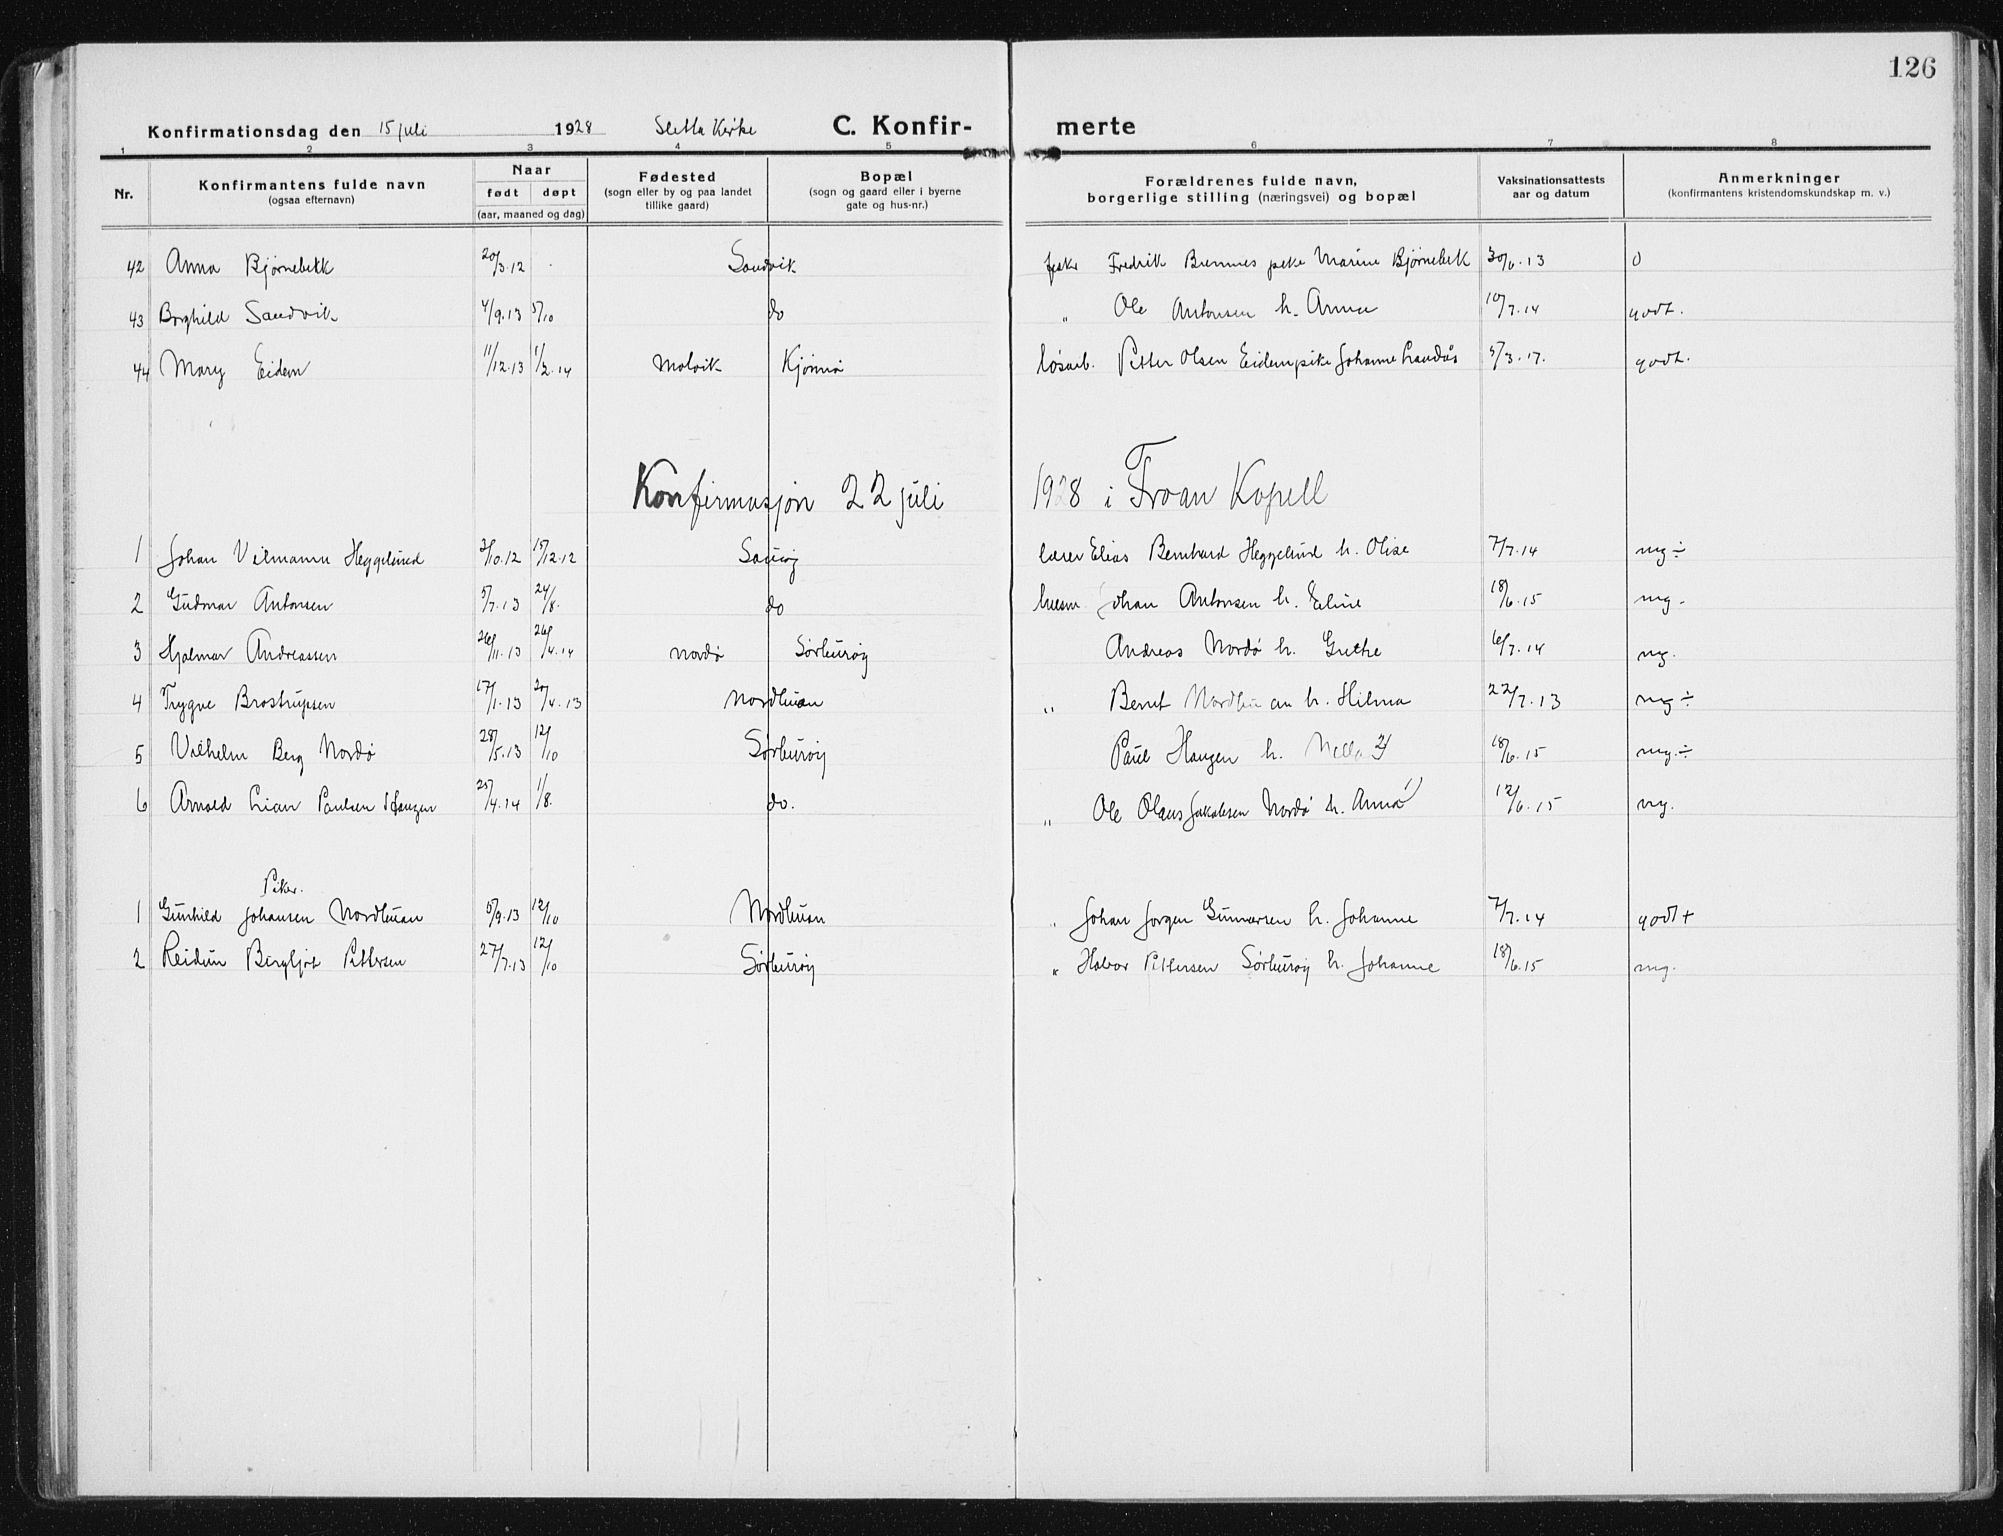 126
Konfirmationsdag den 15 juli 1928 Sletta Kirke C. Konfir- merte
1 2 3 4 5 6 7 8
Nr. Konfirmantens fulde navn (ogsaa efternavn) Naar født døpt (aar, maaned og dag) Fødested (sogn eller by og paa landet tillike gaard) Bopæl (sogn og gaard eller i byerne gate og hus-nr.) Forældrenes fulde navn, borgerlige stilling (næringsvei) og bopæl Vaksinationsattests aar og datum Anmerkninger (konfirmantens kristendomskundskap m. v.)
42 Anna Bjørnebekk 20/3.12 Sandvik fisker Fredrik Bremnes pike Marine Bjørnebekk 30/6.13 0
43 Borghild Sandvik 4/9.13 5/10 do „ Ole Antonsen h. Anna 10/7.14 godt.
44 Mary Eidem 11/12.13 1/2.14 Malvik Kjønnø løsarb. Petter Olsen Eidem pike Johanne 5/3.17. godt.
Konfirmasjon 22 juli 1928 i Froan Kapell
1 Johan Vilmann Heggelund /10.12 15/12.12 Sauøy lærer Elias Bernhard Heggelund h. Olise 7/7.14 mg÷
2 Gudmar Antonsen 5/7.13 24/8. do Johan Antonsen h. Eline 18/6.15 mg.
3 Hjalmar Andreassen 26/11.13 26/4.14 Nordø Sørburøy Andreas Nordø h. Grethe 6/7.14 mg.
4 Trygve Brostrupsen 17/1.13 20/4.13 Nordbuan „ Bernt Nordbuan h. Hilma 22/7.13 mg÷
5 Vilhelm Berg Nordø 28/5.13 12/10 Sørburøy Paul Haugen h. 18/6.15 mg.÷
6 Arnold Lian Paulsen Haugen 25/4.14 1/8. do. „ Ole Olaus Jakobsen Nordø h. Anna 12/6.15 ng.
Piker.
1 Gunhild Johansen Nordbuan 5/9.13 12/10 Nordbuan „ Johan Jørgen Gunnarsen h. Johanne 7/7.14 godt+
2 Reidun Bergljot Pettersen 27/7.13 12/10 Sørburøy „ Halvor Pettersen Sørburøy h. Johanne 18/6.15 mg.